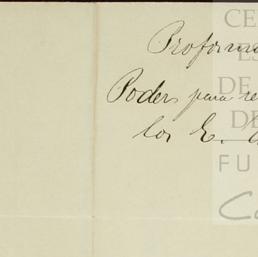 Proforma
Poder para re
los E.
CE
ES
DE
DE
FU
C